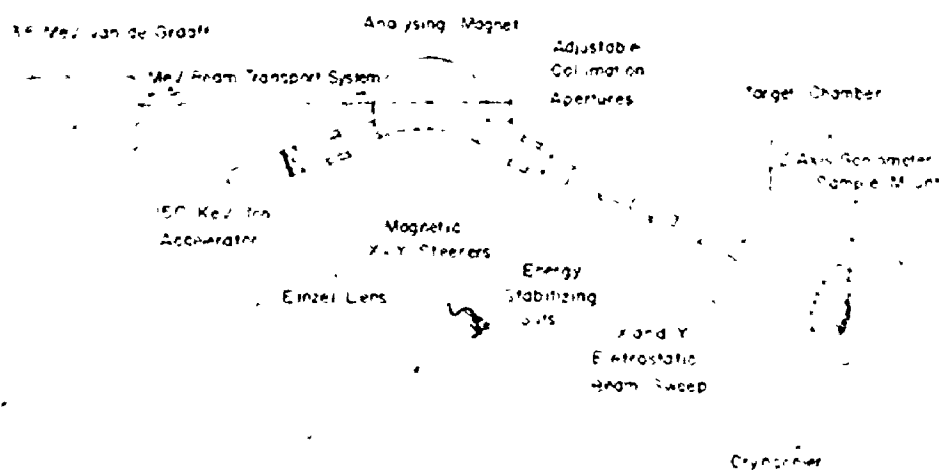 MeV Van de Graaff
Analysing Magnet
MeV Beam Transport System
Adjustable
Collimation
Apertures
Target Chamber
Axis Goniometer
Sample Mount
150 KeV Ion
Accelerator
Magnetic
X-Y Steerers
Einzel Lens
Energy
Stabilizing
Slits
X and Y
Electrostatic
Beam Sweep